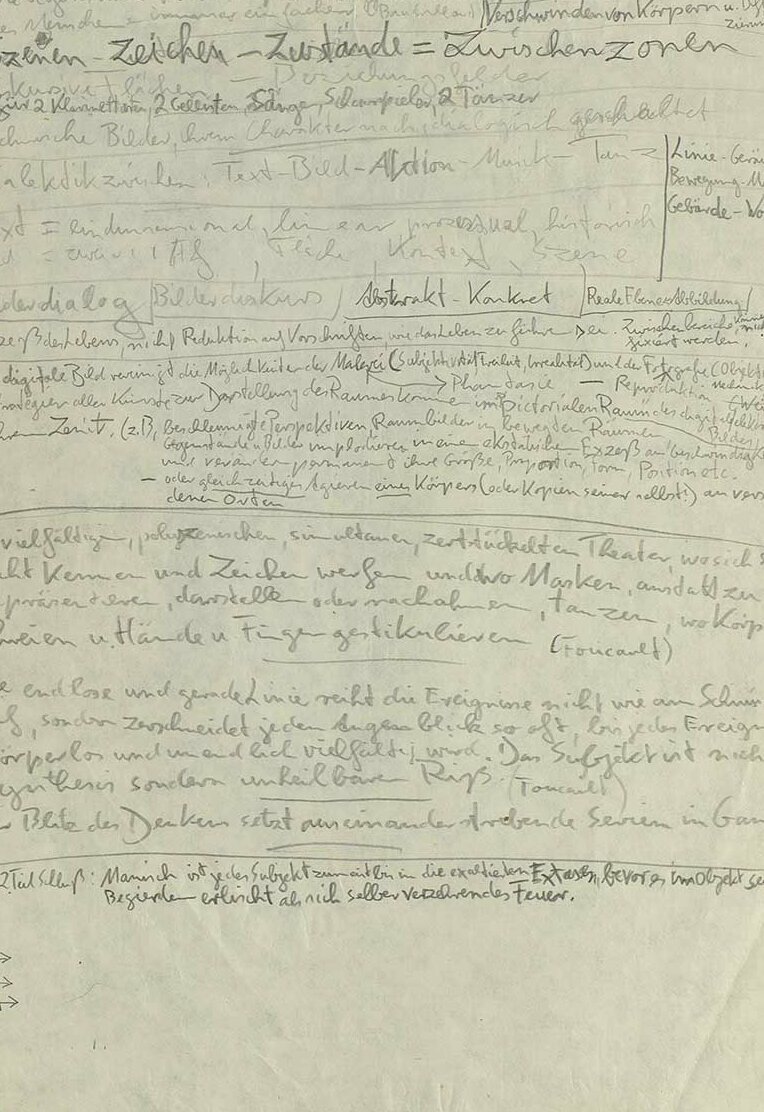 Menschen immer ein (Baudrillard) Verschwinden von Körpern u.
zenen – Zeichen – Zustände = Zwischenzonen
kursive Flächen – Beziehungsfelder
für 2 Klarinetten, 2 Sänger, Schauspieler, 2 Tänzer
Bilder, ihrem Charakter nach dialogisch geschaltet
alektik zwischen: Text – Bild – Aktion – Musik – Tanz
Linie – Geräu
Bewegung – M
Gebärde – Wo
xt = eindimensional, linear prozessual, historisch
= zwei , Fläche, Kontext, Szene
derdialog Bilderdiskurs Abstrakt – Konkret Reale Ebene Abbildung
zeß des Lebens, nicht Reduktion auf Vorschriften, wie das Leben zu führen sei. Zwischenbereiche
fixiert werden.
digitale Bild vereinigt die Möglichkeiten der Malerei (Subjektivität Freiheit, Irrealität) und der Fotografie (Objekti
Phantasie – Reproduktion
rategien aller Künste zur Darstellung des Raumes kommen im Pictorialen Raum des digitalen
Bildes
ihrem Zenit. (z.B. beschleunigte Perspektiven Raumbilder in bewegten Räumen
Gegenstände u. Bilder implodieren in eine ekstatische Exzeß an Geschwindigke
und verändern permanent ihre Größe, Proportion, Form, Position etc.
– oder gleichzeitiges Agieren eines Körpers (oder Kopien seiner selbst!) an vers
denen Orten
vielfältigen, polyszenischen, simultanen, zerstückelten Theater, wo sich s
cht kennen und Zeichen werfen und wo Masken, anstatt zu
präsentieren, darstellen oder nachahmen, tanzen, wo Körp
hreien u. Hände u Finger gestikulieren (Foucault)
e endlose und gerade Linie reiht die Ereignisse nicht wie am Schnür
f, sondern zerschneidet jeden Augenblick so oft, bis jedes Ereign
örperlos und unendlich vielfältig wird. Das Subjekt ist nich
ynthesis sondern unheilbarer Riß. (Foucault)
r Blitz des Denkens setzt auseinander strebende Serien in Gan
2. Teil Schluß: Manisch ist jedes Subjekt zumeist bis in die exaltierten Extasen, bevor es im Objekt se
Begierden erlischt als sich selber verzehrendes Feuer.